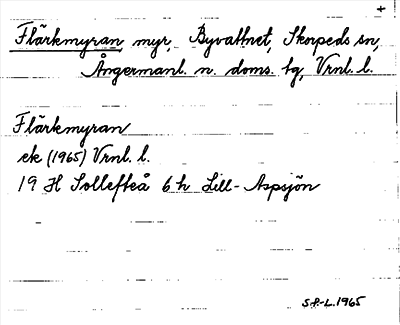 +
Flärkmyran myr, Byvattnet, Skorpeds sn,
Ångermanl. n. doms. tg, Vrnl. l.
Flärkmyran
ek (1965) Vrnl. l.
19 H Sollefteå 6 h Lill-Aspsjön
S.P.-L. 1965